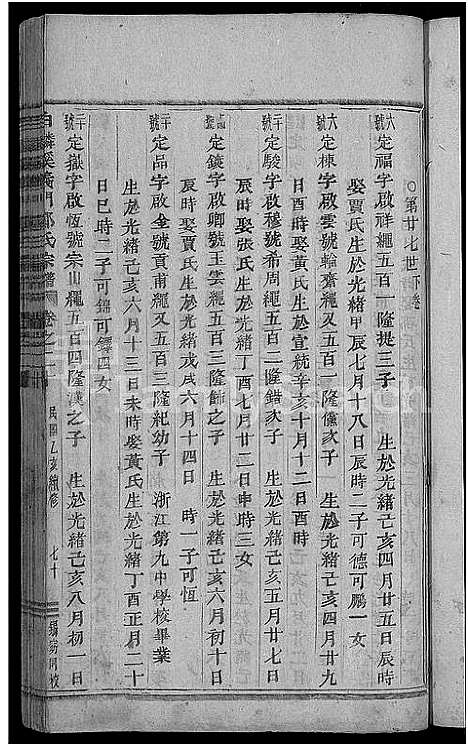 〇第廿七世下卷
六號 定福字啟祥繩五百一隆提三子 生於光緒己亥四月廿五日辰時
娶賈氏生於光緒甲辰七月十八日辰時二子可德可鵬一女
六號 定棟字啟雲號輪齋繩又五百一隆儀次子 生於光緒己亥四月廿九
日酉時娶黃氏生於宣統辛亥十月十二日酉時
十號 定駿字啟穆號希周繩五百二隆錯次子 生於光緒己亥五月廿七日
辰時娶張氏生於光緒辛丑七月廿二日申時三女
定鏡字啟卿號玉雲繩五百三隆飾之子 生於光緒己亥六月初十日
辰時娶賈氏生於光緒戊戌六月十四日 時一子可恆
號 定品字啟全號貢甫繩又五百三隆紀幼子 浙江第九中學校畢業
生於光緒己亥六月十三日未時娶黃氏生於光緒丁酉正月二十
日巳時二子可錦可鐸四女
號 定嶽字啟恆號宗山繩五百四隆漢之子 生於光緒己亥八月初一日
白麟溪義門鄭氏宗譜 卷之 民國乙亥續修 七十